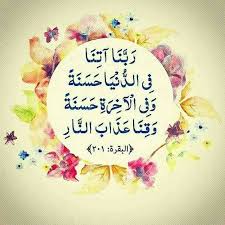 رَبَّنَا آتِنَا
فِي الدُّنْيَا حَسَنَةً
وَفِي الْآخِرَةِ حَسَنَةً
وَقِنَا عَذَابَ النَّارِ
﴿البقرة: ٢٠١﴾